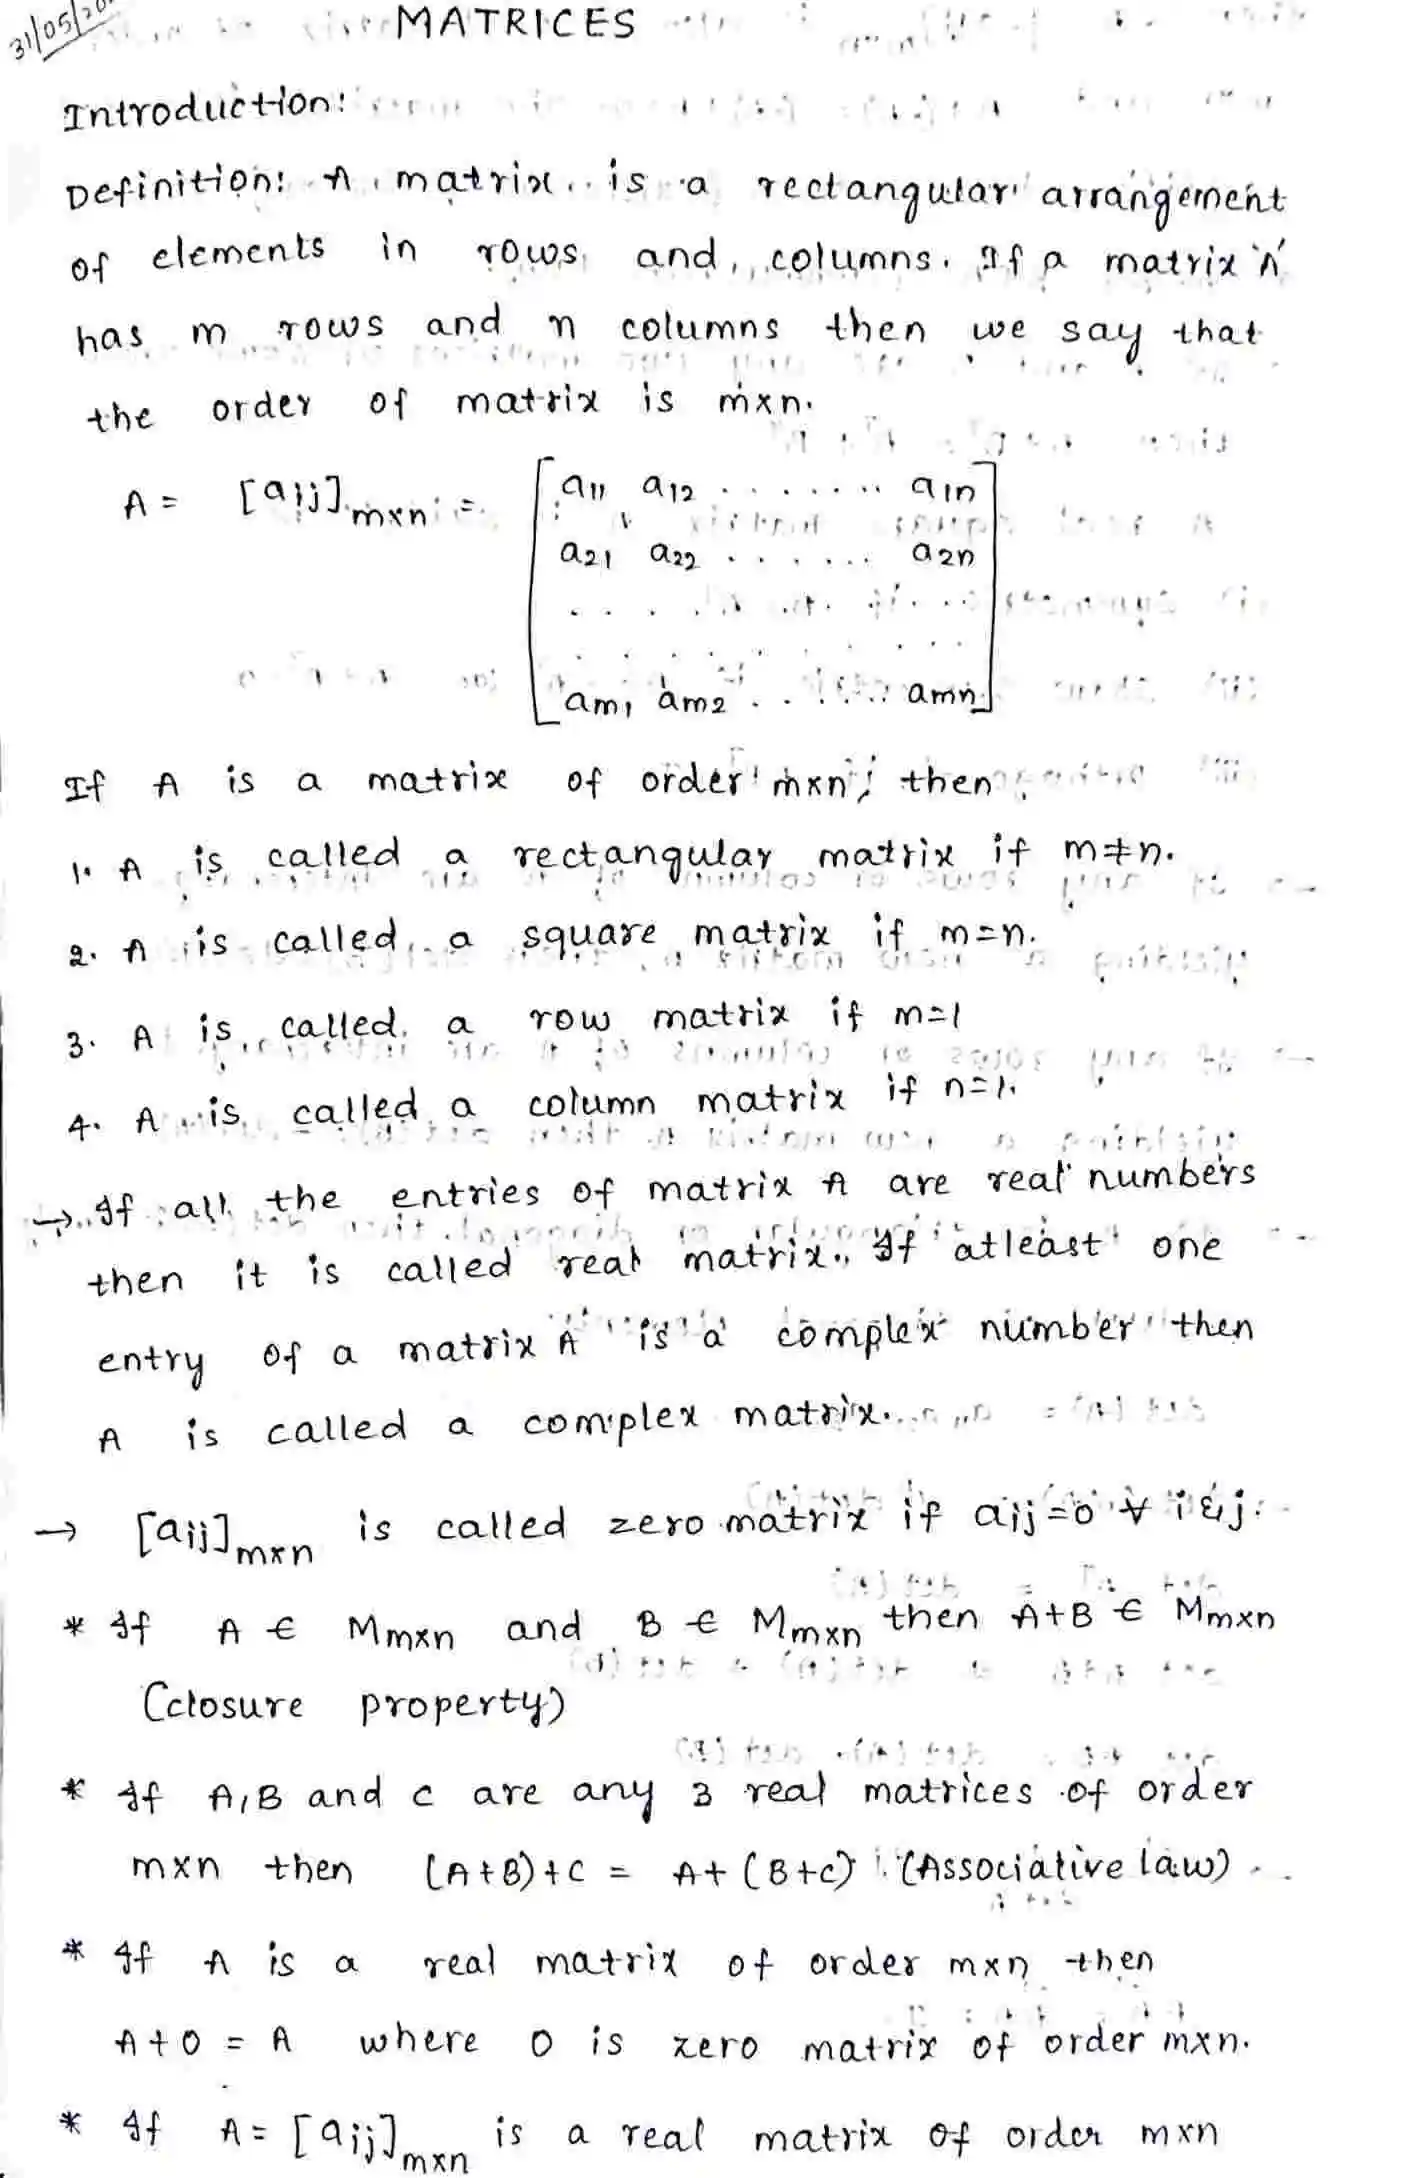 31/05/20
MATRICES
Introduction:
Definition: A matrix is a rectangular arrangement
of elements in rows and columns. If a matrix 'A'
has m rows and n columns then we say that
the order of matrix is mxn.
A = [aij]mxn = [a11 a12 ........ a1n
a21 a22 ...... a2n
. . . . . . . . .
. . . . . . . . .
am1 am2 ...... amn]
If A is a matrix of order mxn, then
1. A is called a rectangular matrix if m≠n.
2. A is called a square matrix if m=n.
3. A is called a row matrix if m=1
4. A is called a column matrix if n=1.
→ If all the entries of matrix A are real numbers
then it is called real matrix. If atleast one
entry of a matrix A is a complex number then
A is called a complex matrix.
→ [aij]mxn is called zero matrix if aij=0 ∀ i & j.
* If A ∈ Mmxn and B ∈ Mmxn then A+B ∈ Mmxn
(closure property)
* If A,B and C are any 3 real matrices of order
mxn then (A+B)+C = A+(B+C) (Associative law)
* If A is a real matrix of order mxn then
A+O = A where O is zero matrix of order mxn.
* If A = [aij]mxn is a real matrix of order mxn